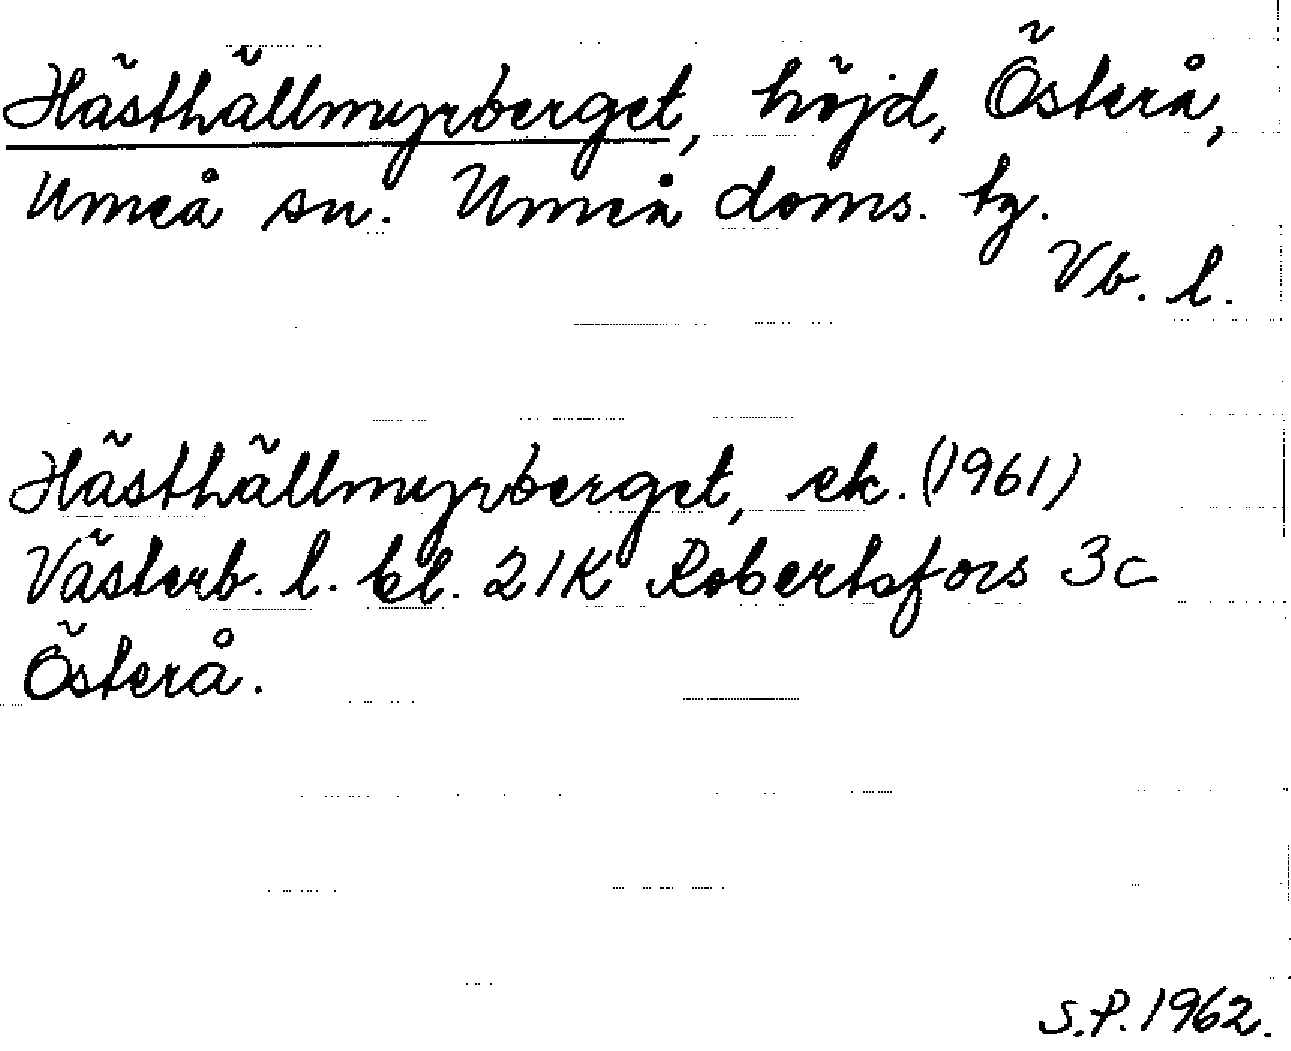 Hästhällmyrberget, höjd, Österå,
Umeå sn. Umeå doms. tg.
Vb. l.
Hästhällmyrberget, ek. (1961)
Västerb. l. bl. 21K Robertsfors 3c
Österå.
S.P. 1962.